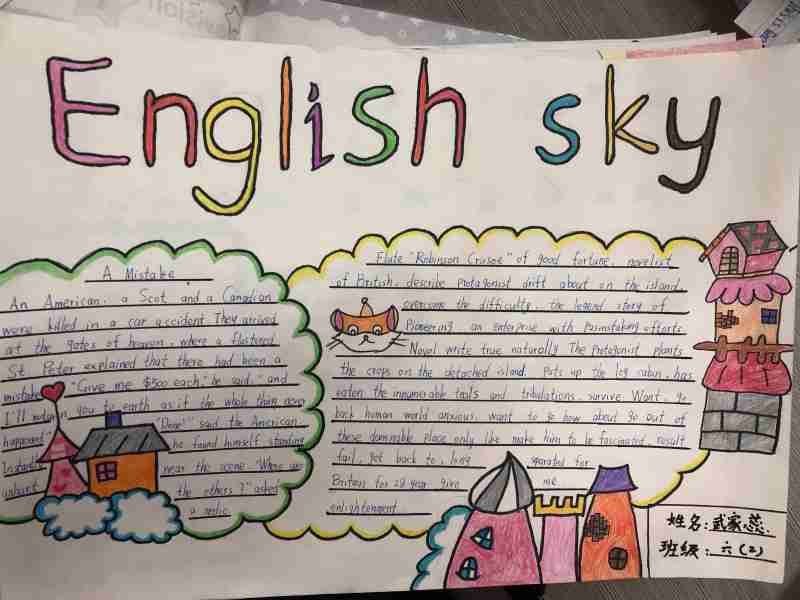 English sky
A Mistake
An American, a Scot and a Canadian
were killed in a car accident They arrived
at the gates of heaven, where a flustered
St Peter explained that there had been a
mistake "Give me $500 each," he said, "and
I'll return you to earth as if the whole thing never
happened" "Done!" said the American
Instantly he found himself standing
unhurt near the scene "Where are
the others?" asked
a medic
Flute "Robinson Crusoe" of good fortune, novelist
of British, describe protagonist drift about on the island
overcome the difficulty, the legend story of
Pioneering an enterprise with painstaking efforts
Novel write true naturally The protagonist plants
the crops on the detached island. Puts up the log cabin, has
eaten the innumerable trials and tribulations, survive Want, go
back human world anxious, want to go how about go out of
these damnable place only like make him to be fascinated, result
fail, get back to, long separated for
Britain for 28 year give me
enlightenment
姓名:武家蕊
班级:六(2)